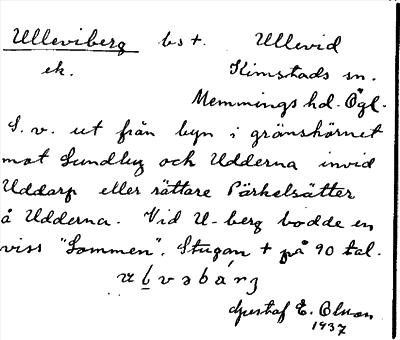 Ulleviberg bs t. Ullevid
ek. Kimstads sn.
Memmings hd. Ögl.
S. v. ut från byn i gränshörnet
mot Sundby och Udderna invid
Uddarp eller rättare Pärkelsätter
å Udderna. Vid U-berg bodde en
viss "Sommen". Stugan † på 90 tal.
Gustaf E. Olsson
1937